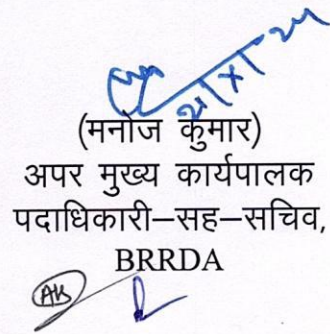 (मनोज कुमार)
अपर मुख्य कार्यपालक
पदाधिकारी–सह–सचिव,
BRRDA
AK